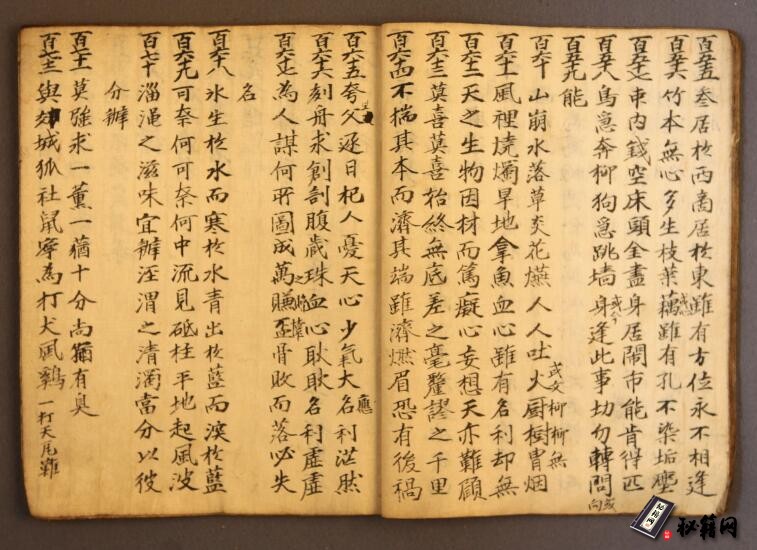 百六十五叁居於西商居於東雖有方位永不相逢
百六十六竹本無心多生枝葉藕雖有孔不染垢塵
百六十七束内錢空床頭金盡身居鬧市能肯得匹
百六十八鳥急奔柳狗急跳墙身逢此事切勿轉問
百六十九能
百六十山崩水落草炎花㷼人人吐火厨樹冒烟
或女柳柳無
百六十一風裡燒爛旱地拿魚血心雖有名利却無
百六十二天之生物因材而篤癡心妄想天亦難顧
百六十三莫喜莫喜始終無底差之毫釐謬之千里
百六十四不揣其本而濟其端雖濟燃眉恐有後禍
百六十五夸父逐日杞人憂天心少氣大名利茫然
應
百六十六刻舟求劍剖腹歲珠血心耿耿名利虛虛
百六十七為人謀何所圖成萬賺盃骨敗而落必失
名
百六十八冰生於水而寒於水青出於藍而深於藍
百六十九可奈何可奈何中流見砥柱平地起風波
百七十淄澠之滋味宜辦涇渭之清濁當分以彼
分辦
百七十一莫強求一薰一蕕十分尚猶有臭
百七十二與城狐社鼠寧為打犬風鷄一打天尾灘
秘籍网